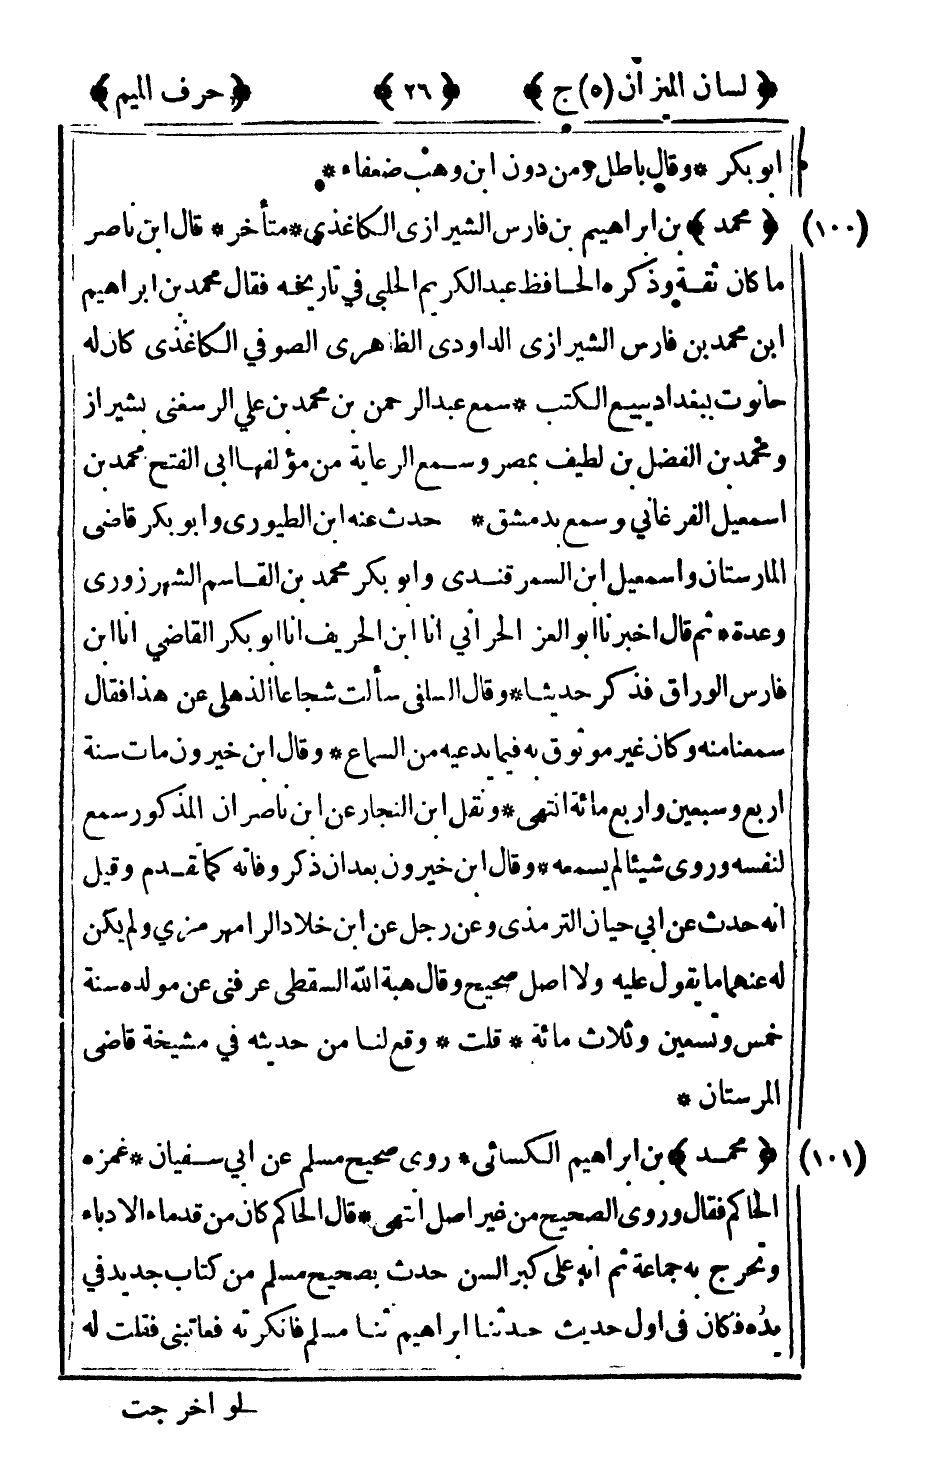 ﴿ لسان الميزان (٥) ج ﴾ ﴿ ٢٦ ﴾ ﴿ حرف الميم ﴾
ابو بكر * وقال باطل ومن دون ابن وهب ضعفاء *
(١٠٠) ﴿ محمد ﴾ بن ابراهيم بن فارس الشيرازى الكاغذي * متأخر * قال ابن ناصر
ما كان ثقة وذكره الحافظ عبد الكريم الحلبي في تاريخه فقال محمد بن ابراهيم
ابن محمد بن فارس الشيرازى الداودى الظاهرى الصوفي الكاغذى كان له
حانوت ببغداد يبيع الكتب * سمع عبد الرحمن بن محمد بن علي الرسغنى بشيراز
ومحمد بن الفضل بن لطيف بمصر وسمع الرعاية من مؤلفها ابى الفتح محمد بن
اسمعيل الفرغاني وسمع بدمشق * حدث عنه ابن الطيورى وابو بكر قاضى
المارستان واسمعيل ابن السمرقندى وابو بكر محمد بن القاسم الشهرزورى
وعدة * ثم قال اخبرنا ابو العز الحراني انا ابن الخريف انا ابو بكر القاضي انا ابن
فارس الوراق فذكر حديثا * وقال السلفى سألت شجاعا الذهلى عن هذا فقال
سمعنا منه وكان غير موثوق به فيما يدعيه من السماع * وقال ابن خيرون مات سنة
اربع وسبعين واربع مائة انتهى * ونقل ابن النجار عن ابن ناصر ان المذكور سمع
لنفسه وروى شيئا لم يسمعه * وقال ابن خيرون بعد ان ذكر وفاته كما تقدم وقيل
انه حدث عن ابي حيان الترمذى وعن رجل عن ابن خلاد الرامهرمزي ولم يكن
له عنهما ما يقول عليه ولا اصل صحيح وقال هبة الله السقطى عرفنى عن مولده سنة
خمس وتسعين وثلاث مائة * قلت * وقع لنا من حديثه في مشيخة قاضى
المرستان *
(١٠١) ﴿ محمد ﴾ بن ابراهيم الكسائى * روى صحيح مسلم عن ابي سفيان * غمزه
الحاكم فقال وروى الصحيح من غير اصل انتهى * قال الحاكم كان من قدماء الادباء
وتخرج به جماعة ثم انه على كبر السن حدث بصحيح مسلم من كتاب جديد في
يده فكان فى اول حديث حدثنا ابراهيم ثنا مسلم فانكرته فعاتبنى فقلت له
لو اخرجت